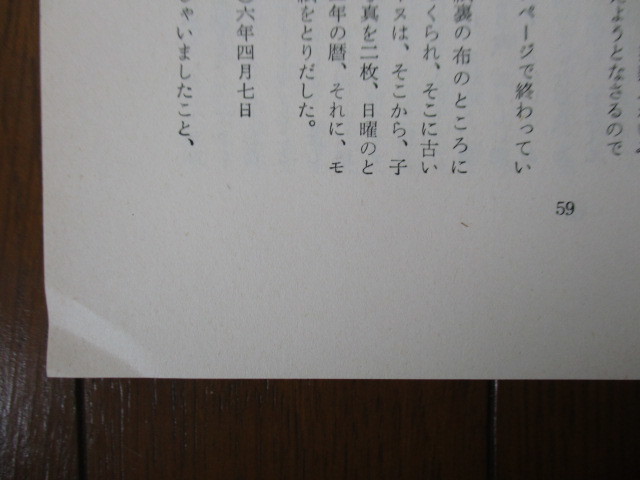 ようとなさるので
ページで終わってい
裏の布のところに
くられ、そこに古い
ヌは、そこから、子
真を二枚、日曜のと
年の暦、それに、モ
をとりだした。
六年四月七日
ゃいましたこと、
59